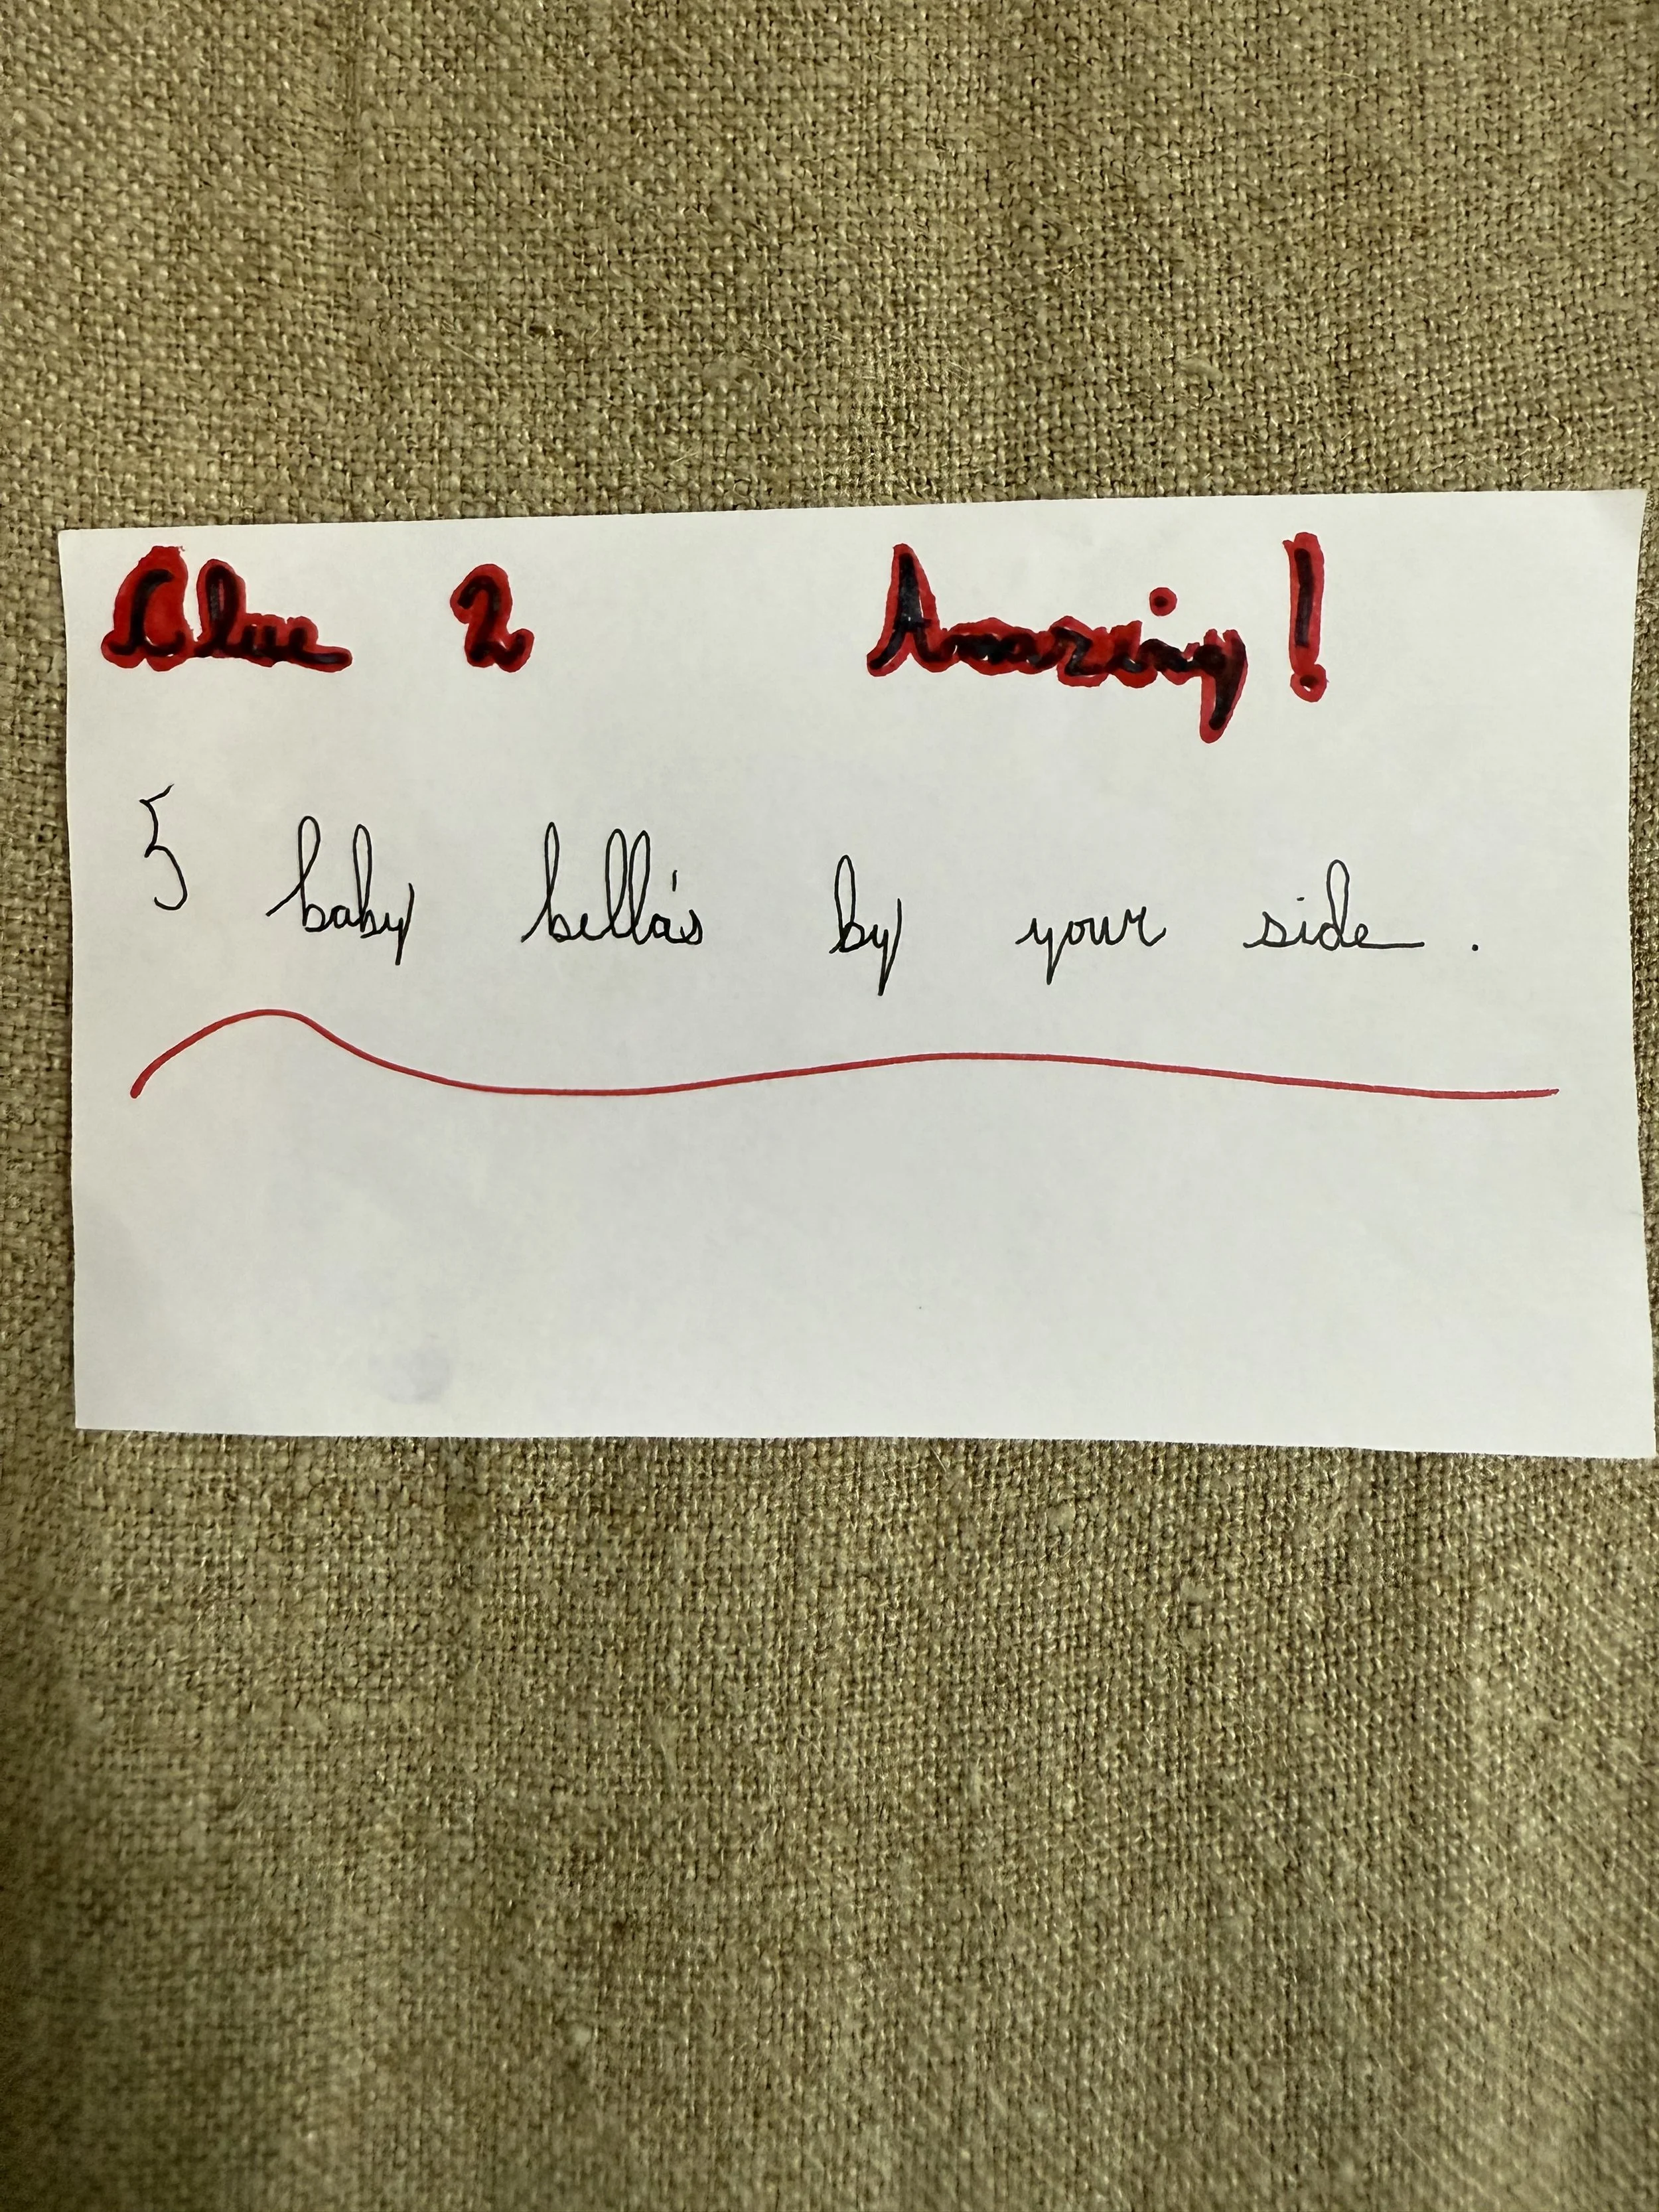 Clue 2 Amazing!
5 baby bella's by your side.